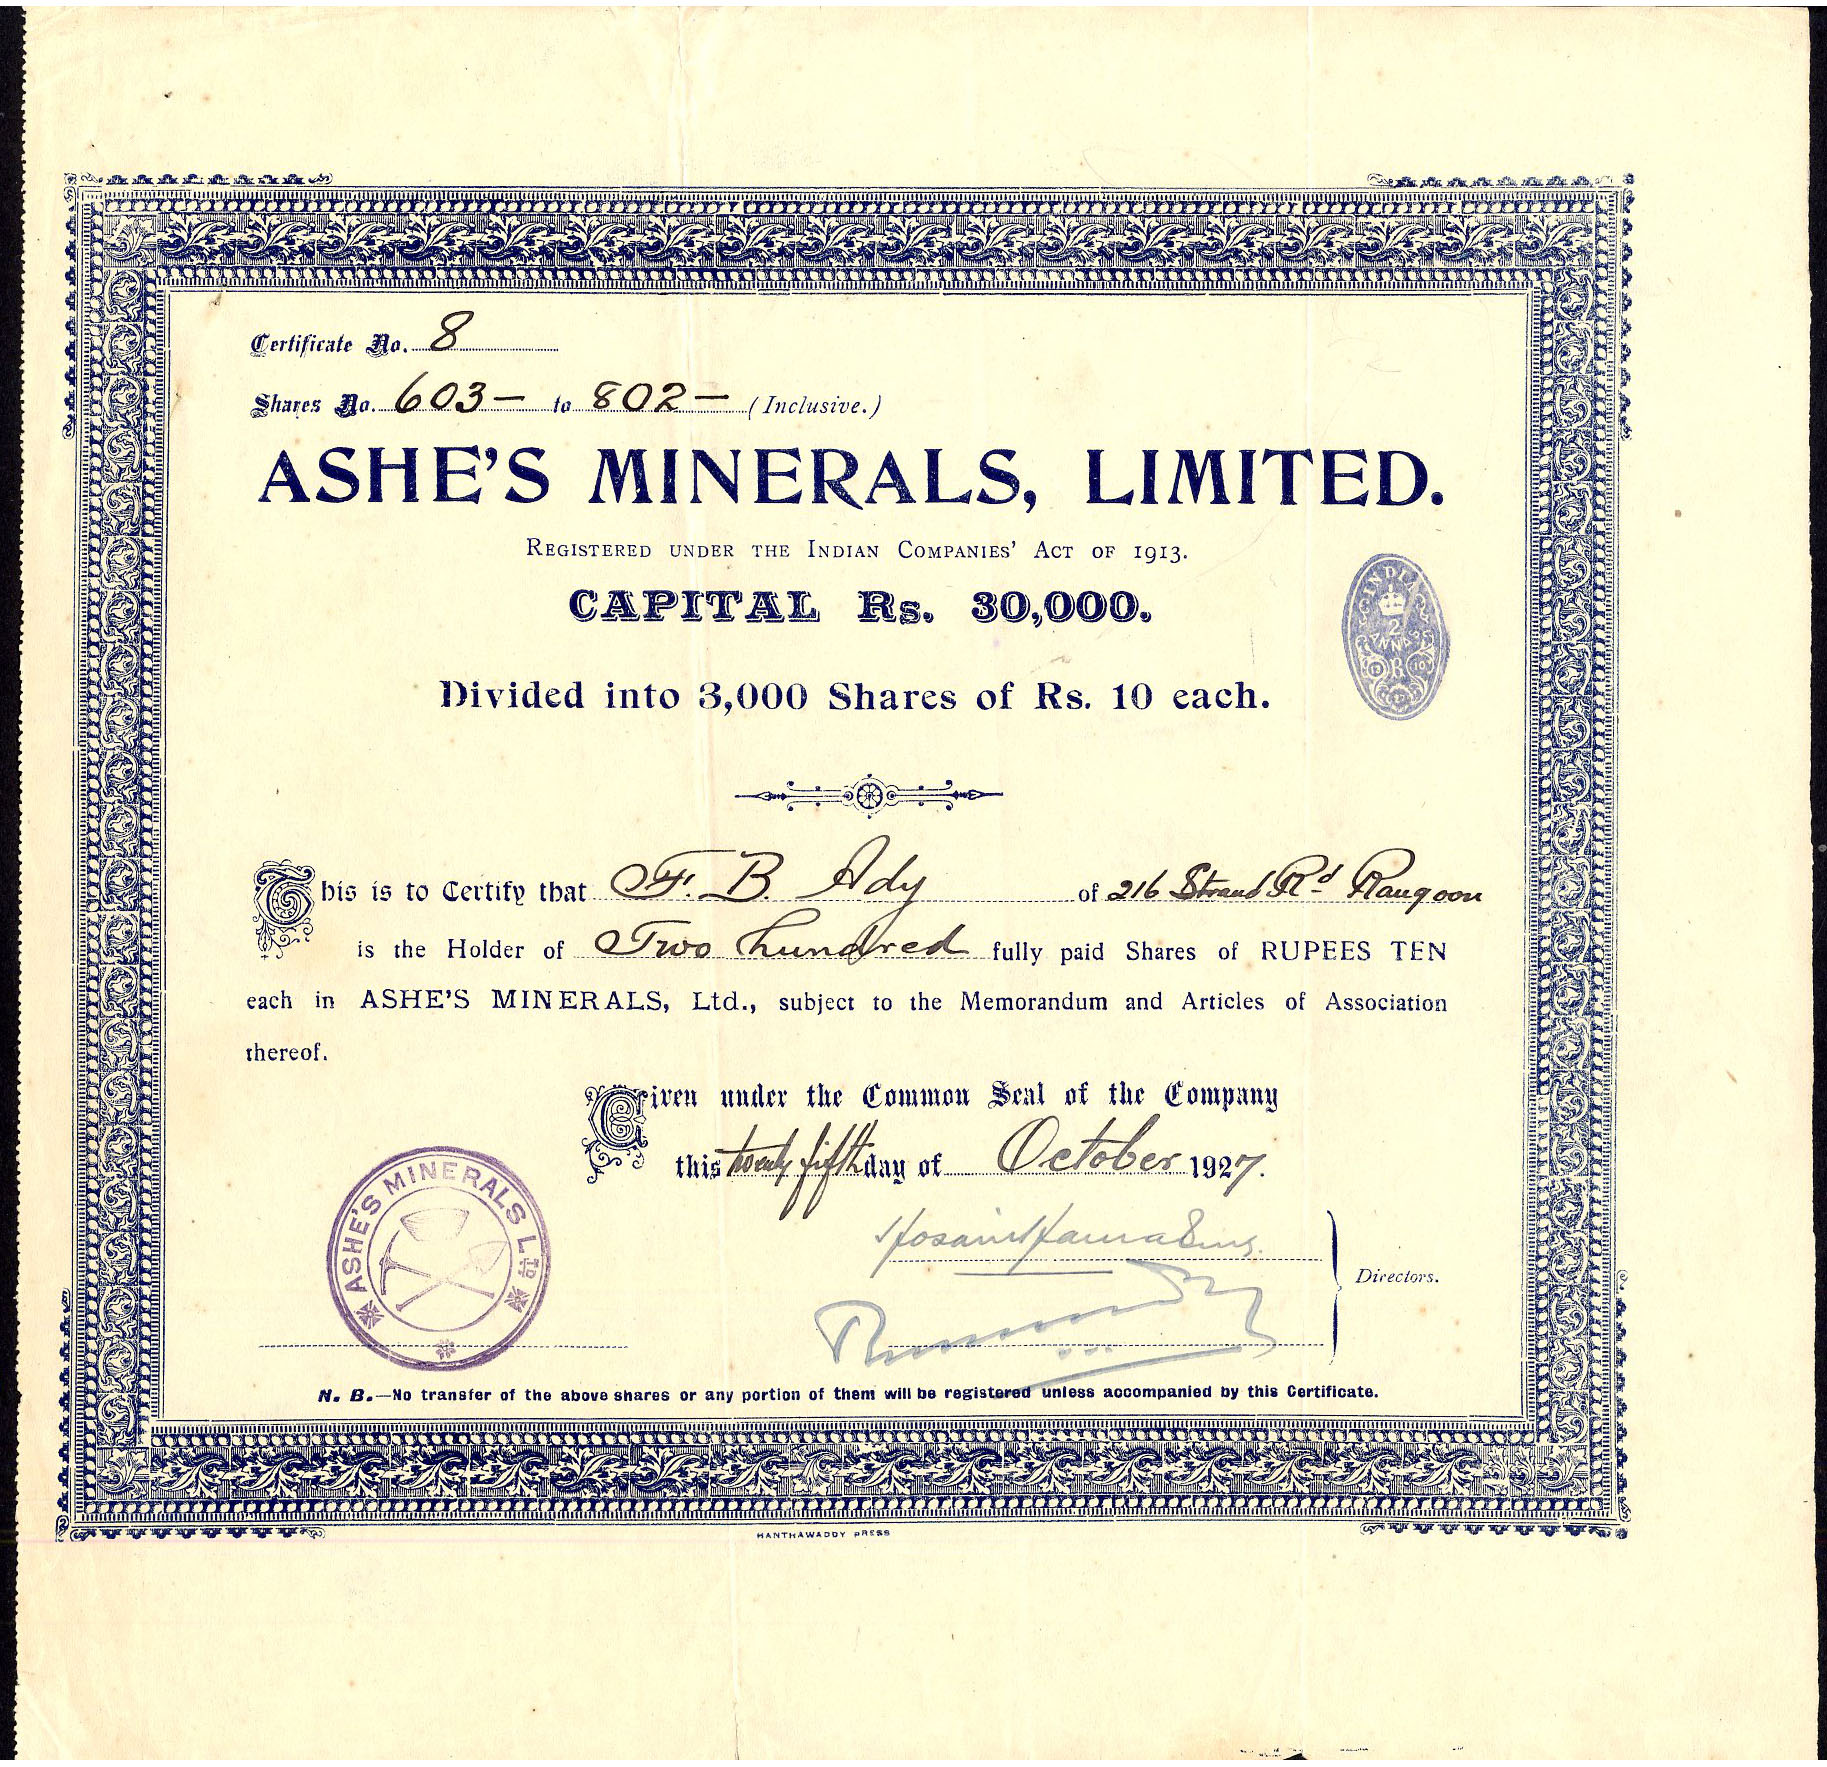 Certificate No. 8
Shares No. 603 — to 802 — (Inclusive.)
ASHE'S MINERALS, LIMITED.
REGISTERED UNDER THE INDIAN COMPANIES' ACT OF 1913.
CAPITAL Rs. 30,000.
INDIA
2
ANNAS
R
Divided into 3,000 Shares of Rs. 10 each.
This is to Certify that F. B. Ady of 216 Strand Rd Rangoon
is the Holder of Two hundred fully paid Shares of RUPEES TEN
each in ASHE'S MINERALS, Ltd., subject to the Memorandum and Articles of Association
thereof.
Given under the Common Seal of the Company
this twenty fifth day of October 1927.
ASHE'S MINERALS LTD
Directors.
N. B.—No transfer of the above shares or any portion of them will be registered unless accompanied by this Certificate.
HANTHAWADDY PRESS